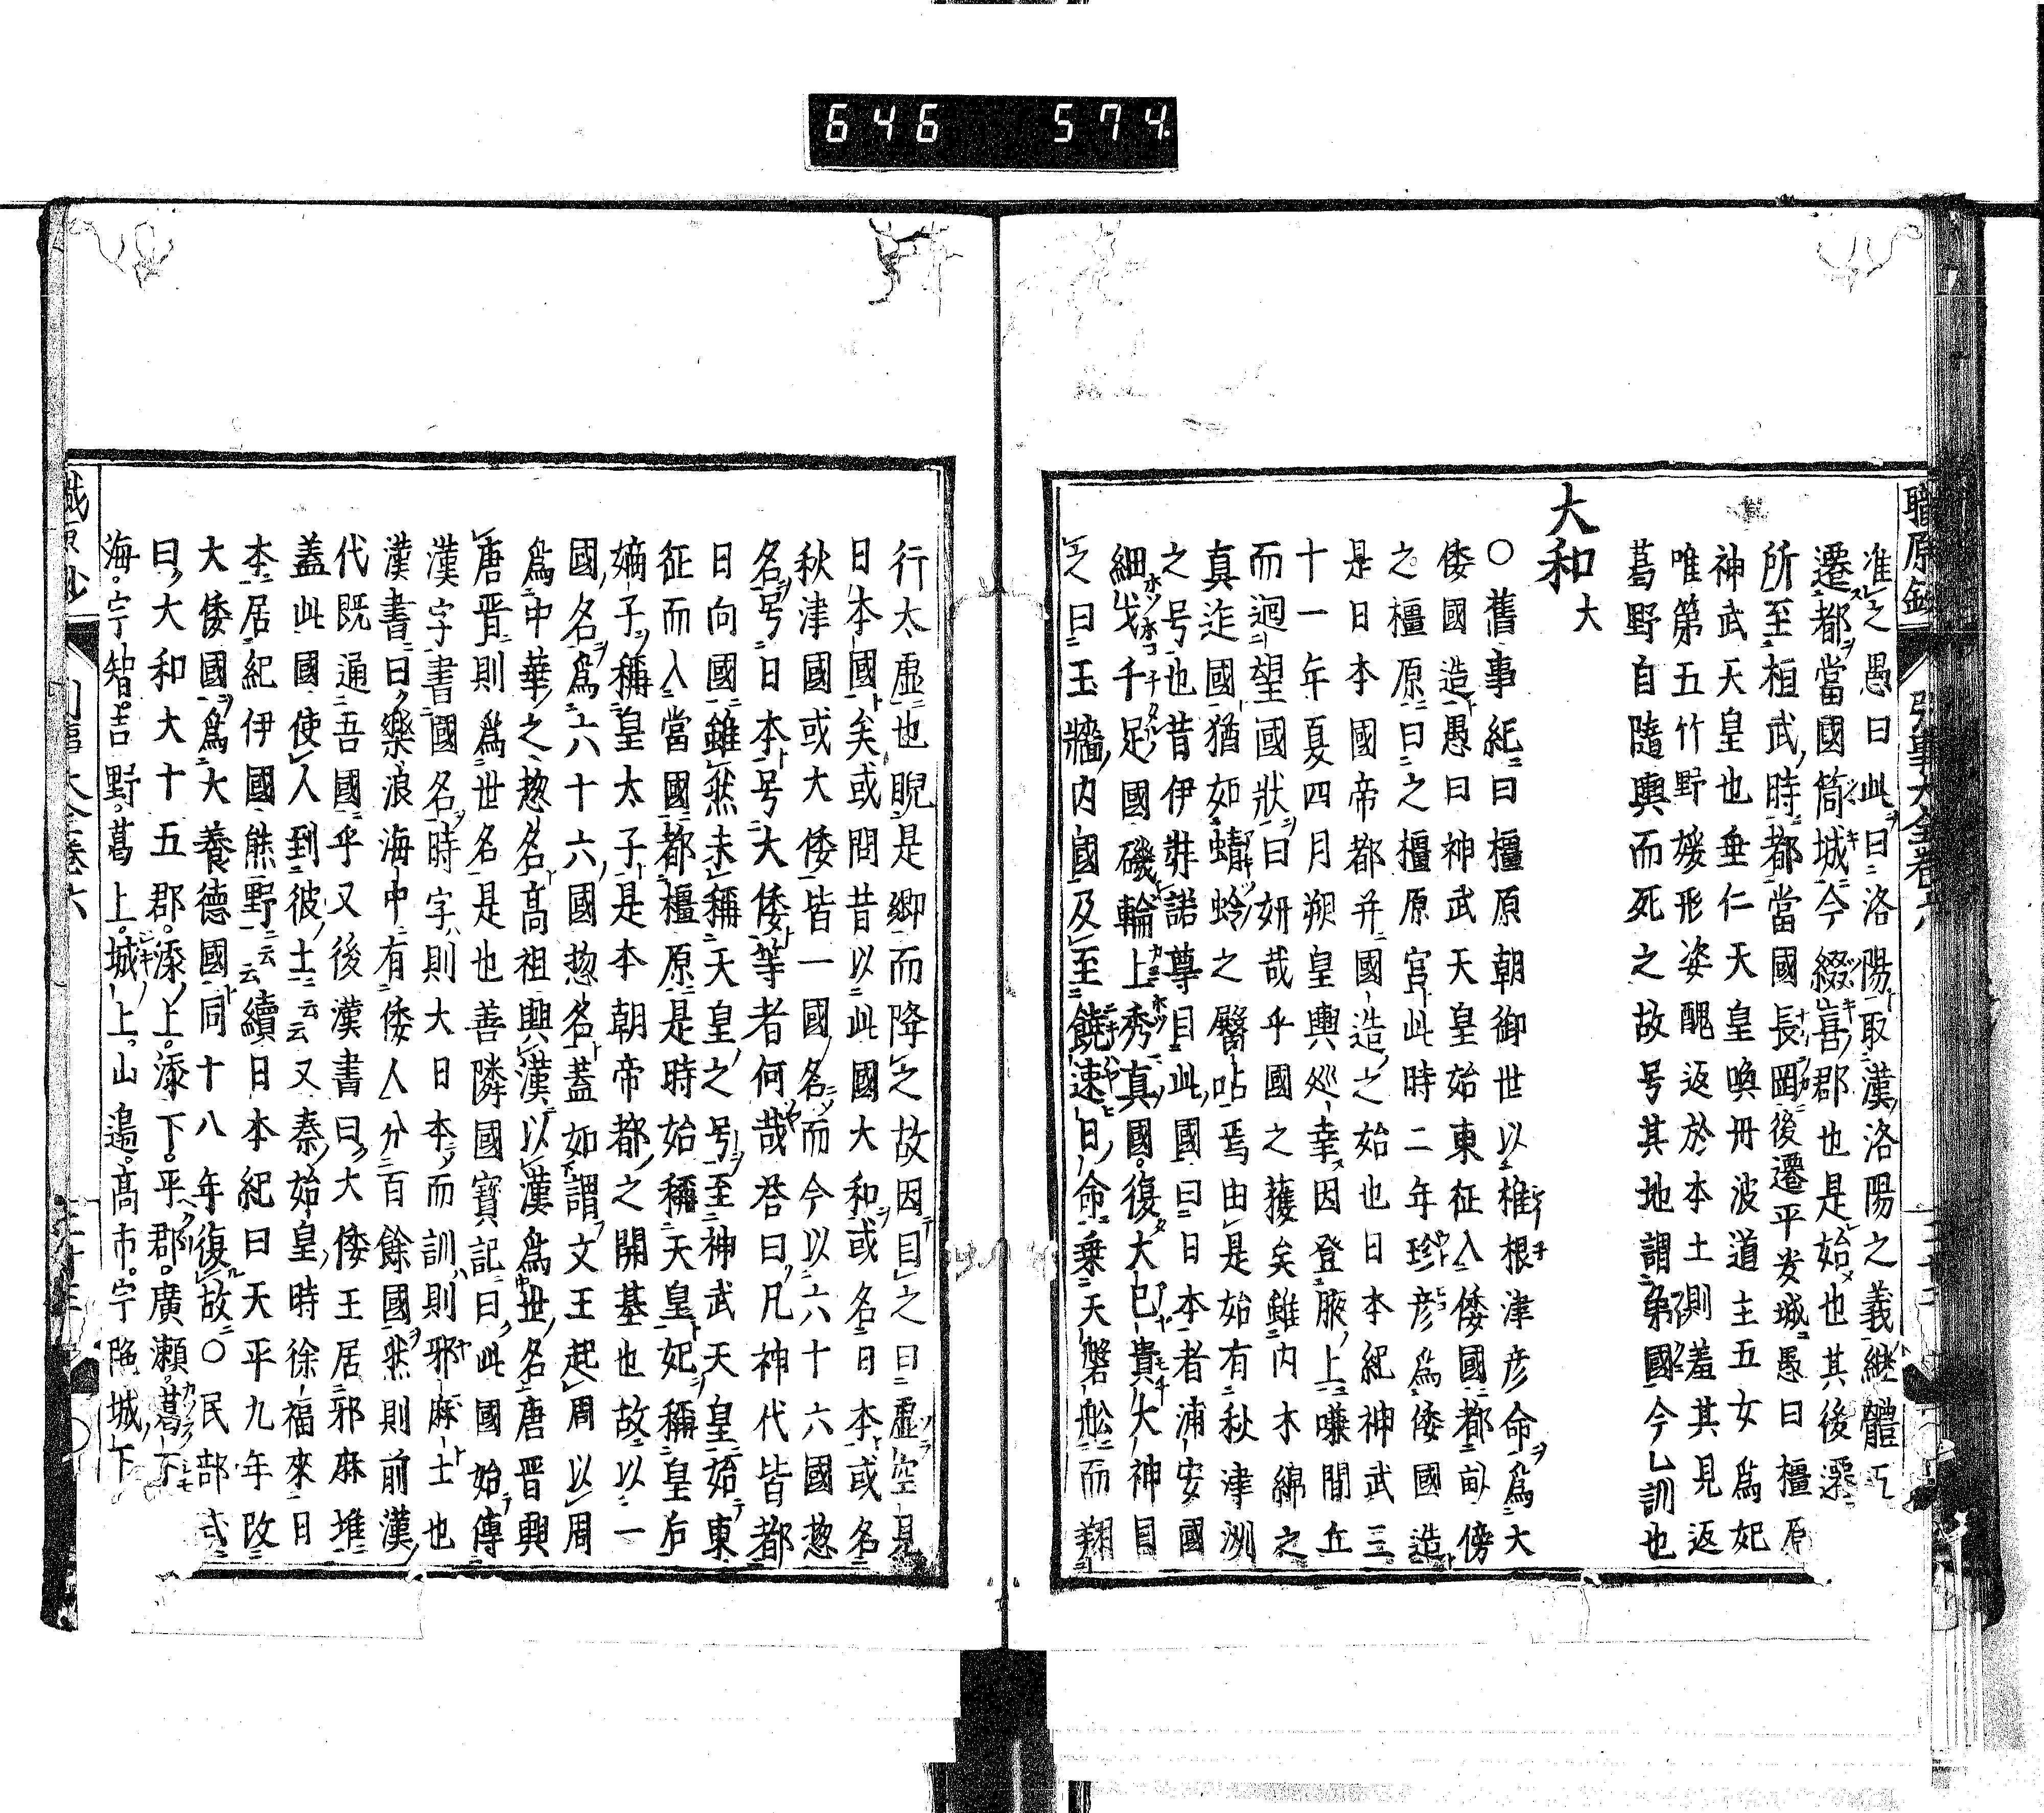 646 574
職原鈔 引事大全卷六
准之愚曰此曰洛陽取漢洛陽之義継體天
遷都當國筒城今綴喜郡也是始也其後遷
所至桓武時都當國長岡後遷平安城愚曰橿原
神武天皇也垂仁天皇喚丹波道主五女爲妃
唯第五竹野媛形姿醜返於本土則羞其見返
葛野自隨輿而死之故号其地謂弟國今乙訓也
大和大
〇舊事紀曰橿原朝御世以椎根津彦命爲大
倭國造愚曰神武天皇始東征入倭國都畝傍
之橿原曰之橿原宮此時二年珍彦爲倭國造
是日本國帝都并國造之始也日本紀神武三
十一年夏四月朔皇輿巡幸因登腋上嗛間丘
而廻望國狀曰妍哉乎國之獲矣雖内木綿之
真迮國猶如蜻蛉之臀呫焉由是始有秋津洲
之号也昔伊弉諾尊目此國曰日本者浦安國
細戈千足國磯輪上秀真國復大巳貴大神目
之曰玉牆内國及至饒速日命乗天磐舩而翔
行太虚也睨是郷而降之故因目之曰虚空見
日本國矣或問昔以此國大和或名日本或名
秋津國或大倭皆一國名而今以六十六國惣
名号日本号大倭等者何哉答曰凡神代皆都
日向國雖然未稱天皇之号至神武天皇始東
征而入當國都橿原是時始稱天皇妃稱皇后
嫡子稱皇太子是本朝帝都之開基也故以一
國名爲六十六國惣名蓋如謂文王起周以周
爲中華之惣名高祖興漢以漢爲世名唐晋興
唐晋則爲世名是也善隣國寶記曰此國始傳
漢字書國名時字則大日本而訓則邪麻士也
漢書曰樂浪海中有倭人分百餘國然則前漢
代既通吾國乎又後漢書曰大倭王居邪麻堆
蓋此國使人到彼土云云又秦始皇時徐福來日
本居紀伊國熊野云云續日本紀曰天平九年改
大倭國爲大養德國同十八年復故〇民部式
曰大和大十五郡添上添下平群廣瀬葛下
海宇智吉野葛上城上山邉高市宇陁城下